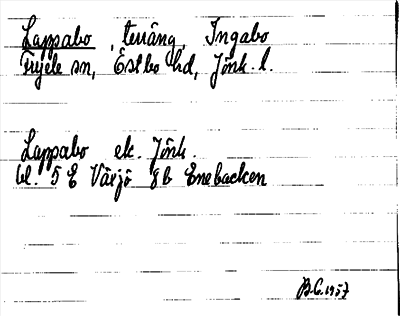 Lappabo, terräng, Ingabo
Tryele sn, Östbo hd, Jönk. l.
Lappabo ek. Jönk.
bl. 5 E Växjö 8 b Enebacken
B.G. 1957